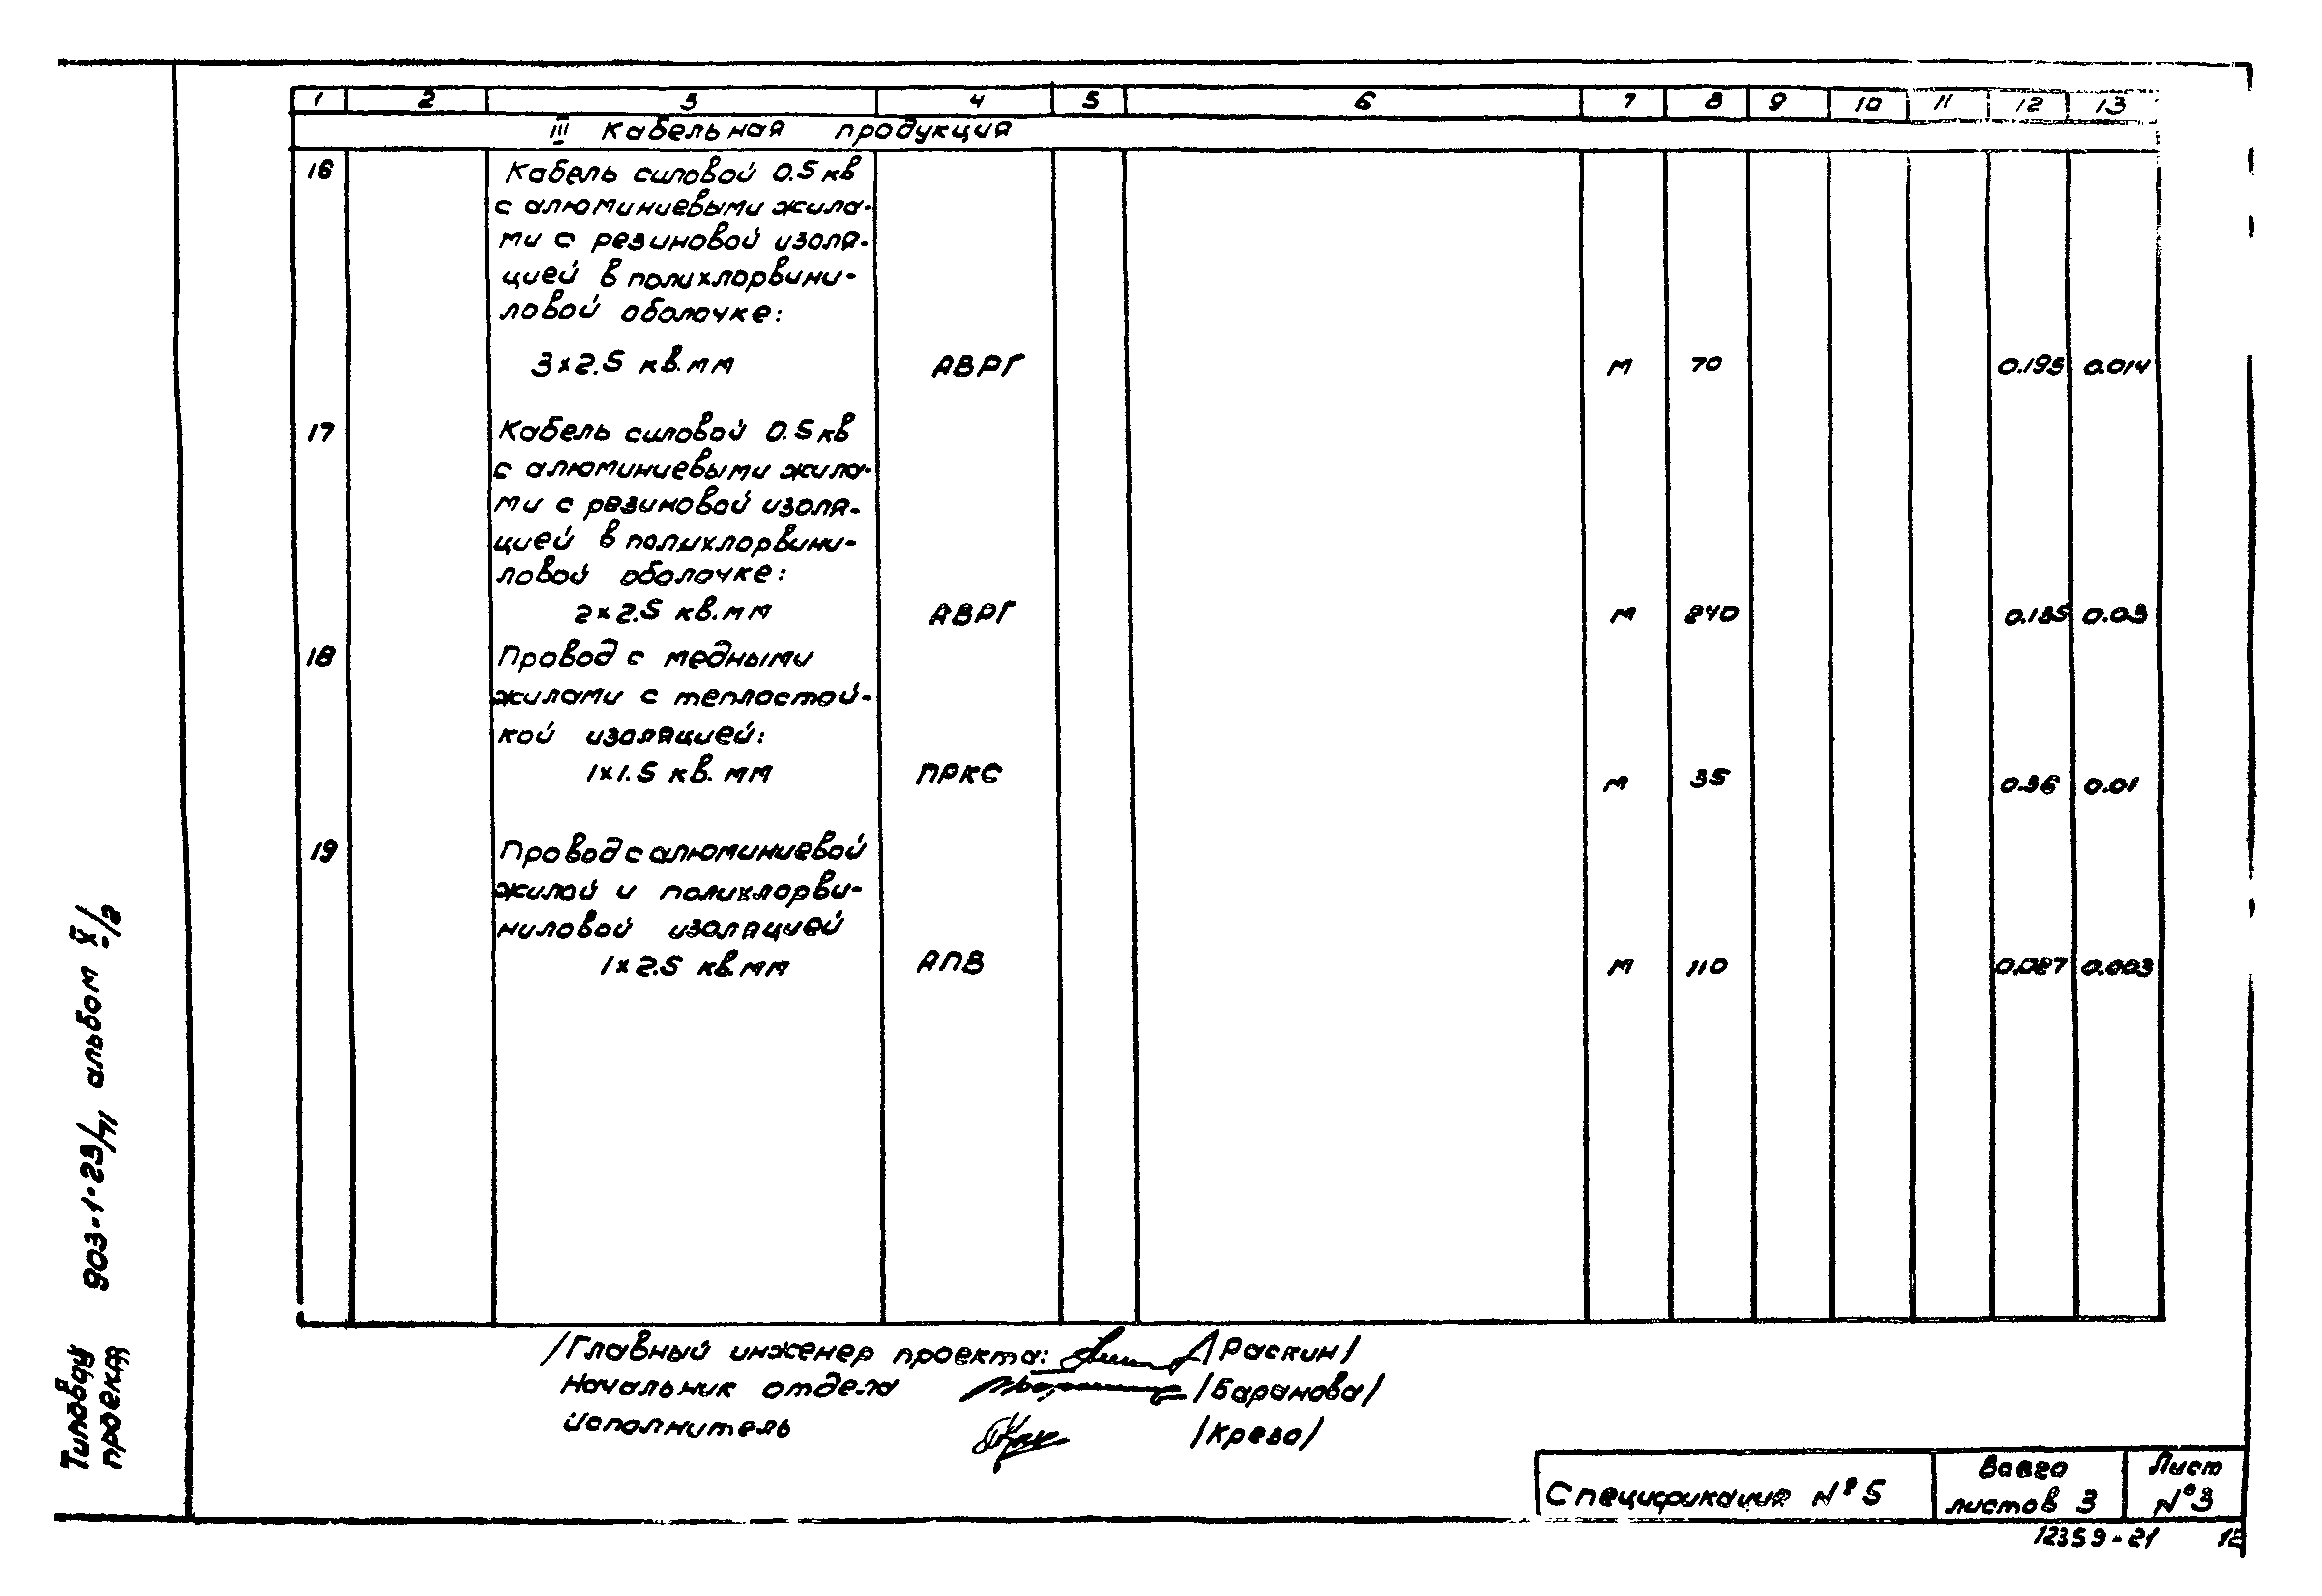 1 2 3 4 5 6 7 8 9 10 11 12 13
III Кабельная продукция
16 Кабель силовой 0.5 кв
с алюминиевыми жила-
ми с резиновой изоля-
цией в полихлорвини-
ловой оболочке:
3×2.5 кв.мм АВРГ м 70 0.195 0.014
17 Кабель силовой 0.5 кв
с алюминиевыми жила-
ми с резиновой изоля-
цией в полихлорвини-
ловой оболочке:
2×2.5 кв.мм АВРГ м 240 0.03
18 Провод с медными
жилами с теплостой-
кой изоляцией:
1×1.5 кв.мм ПРКС м 35 0.36 0.01
19 Провод с алюминиевой
жилой и полихлорви-
ниловой изоляцией
1×2.5 кв.мм АПВ м 110 0.027 0.003
/Главный инженер проекта: /Раскин/
Начальник отдела /Баранова/
Исполнитель /Крезо/
Спецификация №5
Всего
листов 3
Лист
№3
12359-21 12
Типовой
проект
903-1-23/71 альбом X/2